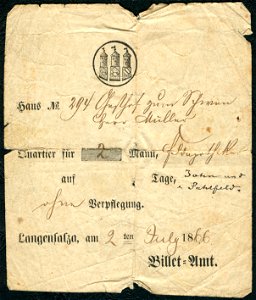 Haus № 294 Gasthof zum Schwan
Herr Müller
Quartier für 2 Mann,
auf Tage, Zahn und
Pahlfeld.
ohne Verpflegung.
Langensalza, am 2 ten July 1866
Billet-Amt.